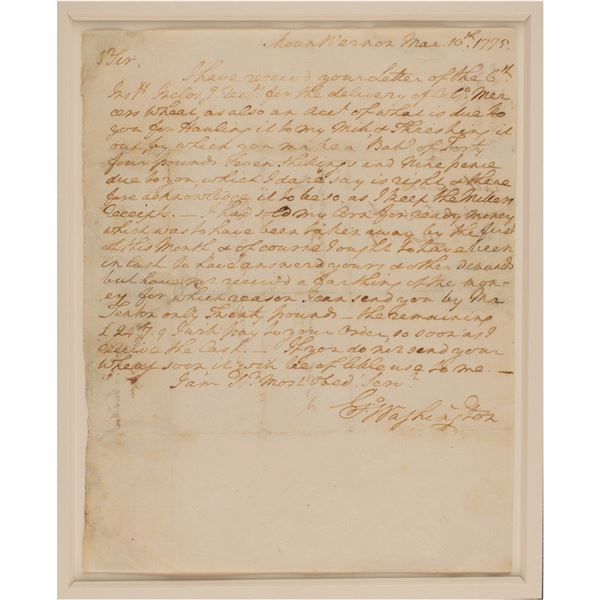 Mount Vernon Mar. 10th. 1775.
Sir.
I have receiv'd your Letter of the 6th
Inst. Inclosg. Rect. for the delivery of Colo. Mer-
cers Wheat, as also an Acct. of what is due to
you for Hauling it to my Mill, & Threshing it
out, by which you make a Balle. of Forty
four pounds Seven Shillings and Nine pence
due to you, which I dare say is right & there
fore acknowledge it to be so, as I keep the Millers
Receipts. — I had sold my Corn for ready money
which was to have been taken away by the first
of this Month & of course I ought to have been
in Cash to have answerd yours & other Demands
but have not receiv'd a farthing of the mon-
ey, for which reason I can send you by Mr.
Tenton only Twenty pounds — the remaining
£24.7.9 I will pay to your Order, so soon as I
receive the Cash. — If you do not send your
Wheat soon, it will be of little use to me —
I am Sr. Most Obed. Servt.
Go. Washington